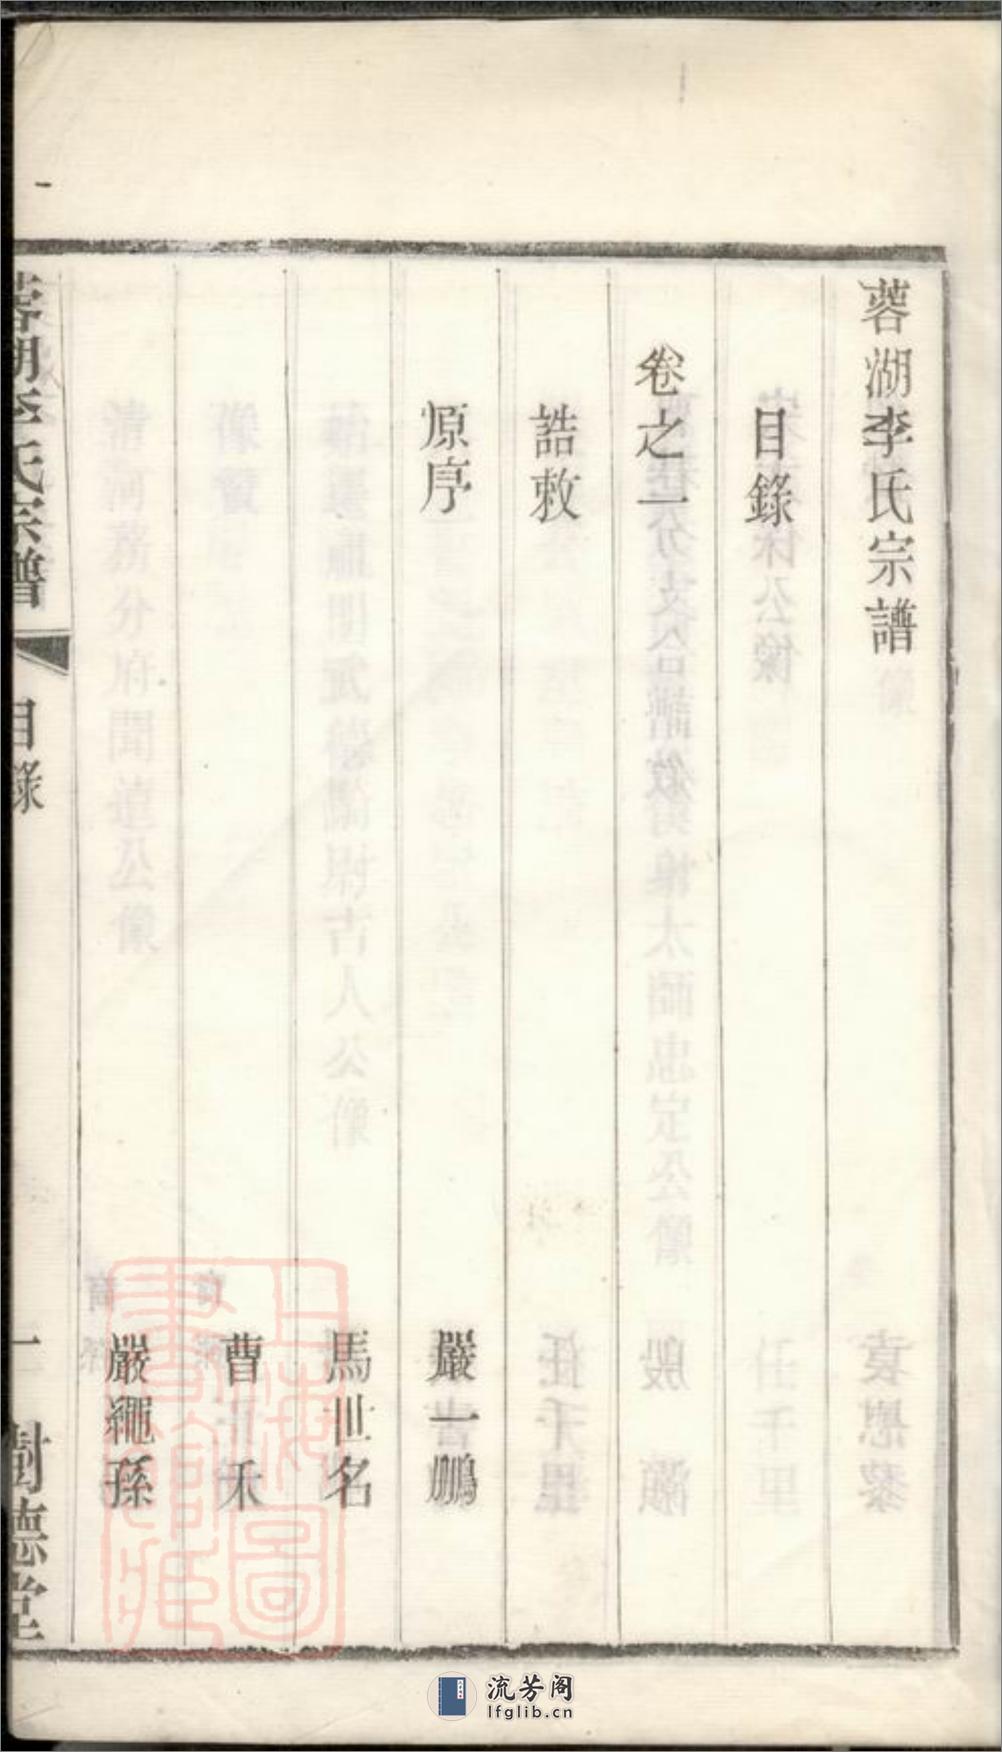 蓉湖李氏宗譜
目錄
卷之一
誥敕
原序
嚴一鵬
馬世名
曹禾
嚴繩孫
蓉湖李氏宗譜
目錄
一
樹德堂
上海圖書館藏
流芳阁
lfglib.cn